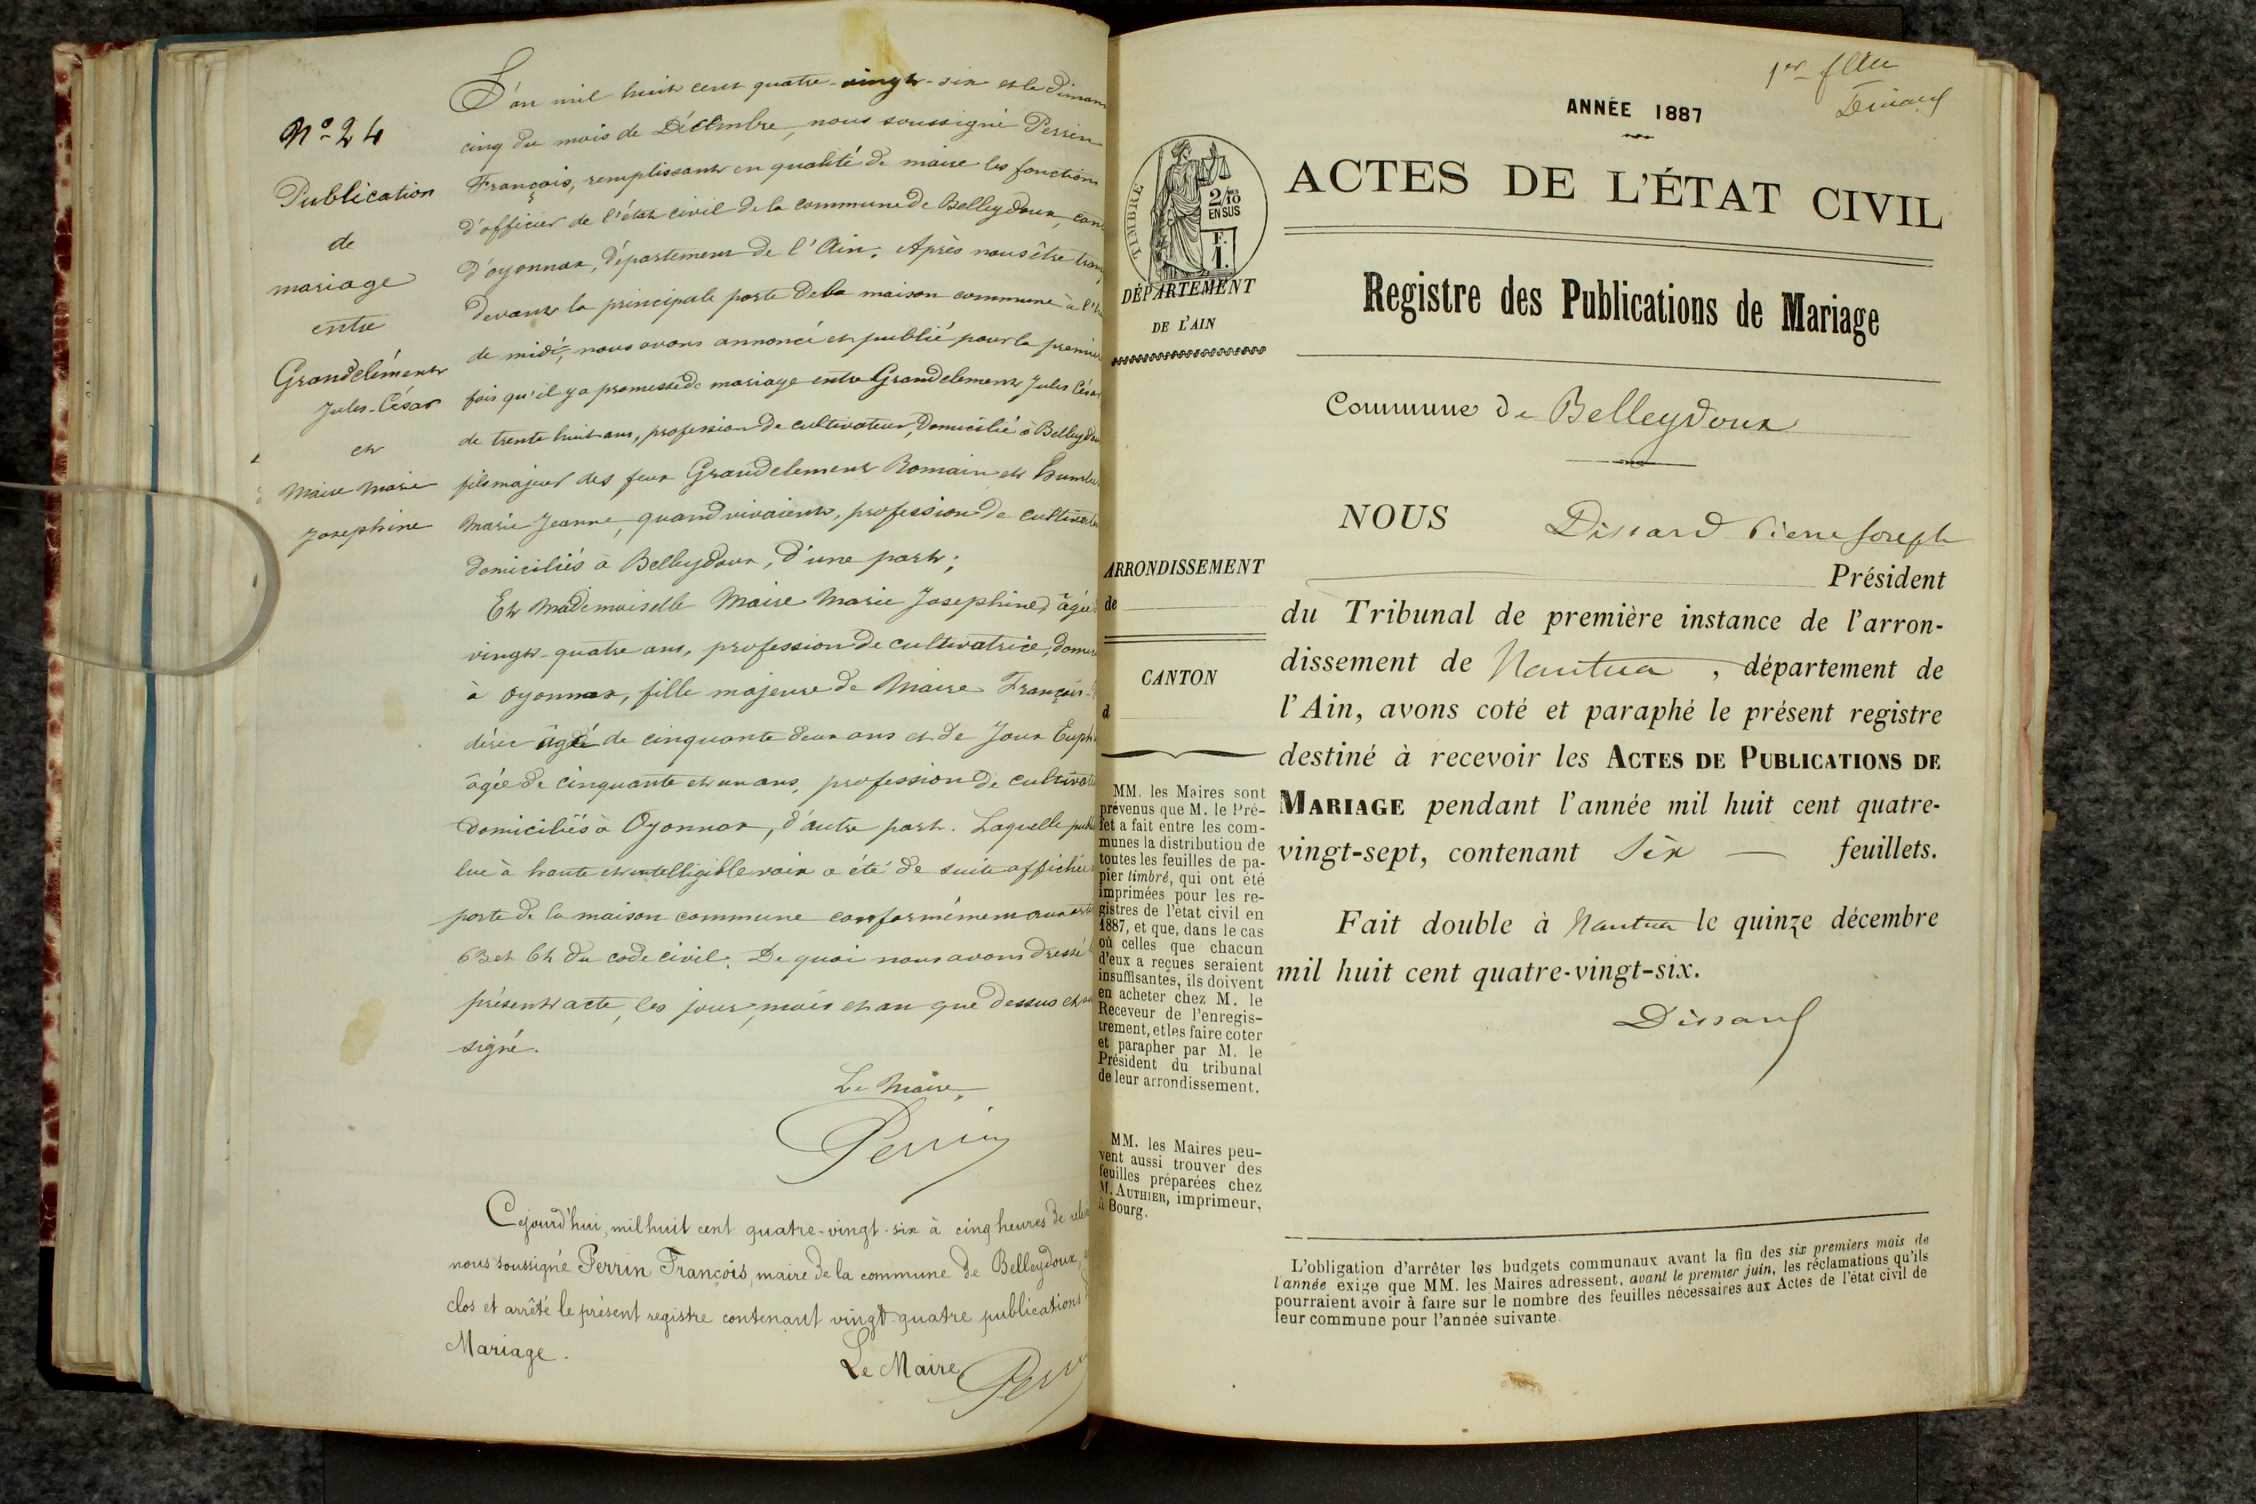 N° 24
Publication
de
mariage
entre
Grandclément
Jules-César
et
Maire Marie
Josephine
L'an mil huit cent quatre-vingt-six et le diman
cinq du mois de Décembre, nous soussigné Perrin
François, remplissant en qualité de maire les fonctions
d'officier de l'état civil de la commune de Belleydoux, can
d'oyonnax, département de l'Ain. Après nous être trans
devant la principale porte de la maison commune à l'h
de midi, nous avons annoncé et publié pour la premièr
fois qu'il y a promesse de mariage entre Grandclement Jules César
de trente huit ans, profession de cultivateur, domicilié à Belleydou
fils majeur des feux Grandclement Romain et Humber
Marie Jeanne, quand vivaient, profession de cultivate
domiciliés à Belleydoux, d'une part;
Et Mademoiselle Maire Marie Josephine, âgée
vingt-quatre ans, profession de cultivatrice, domici
à Oyonnax, fille majeure de Maire François
désir âgé de cinquante deux ans et de Joux Euph
âgée de cinquante et un ans, profession de cultivat
domiciliés à Oyonnax, d'autre part. Laquelle publi
lue à haute et intelligible voix a été de suite affichée
porte de la maison commune conformément aux art
63 et 64 du code civil. De quoi nous avons dressé
présent acte, les jour, mois et an que dessus et
signé.
Le Maire,
Perrin
Cejourd'hui, mil huit cent quatre-vingt-six à cinq heures de rele
nous soussigné Perrin François, maire de la commune de Belleydoux,
clos et arrêté le présent registre contenant vingt-quatre publications
Mariage.
Le Maire
Perr
1er
Dissard
ANNÉE 1887
ACTES DE L'ÉTAT CIVIL
TIMBRE
2/10
EN SUS
F.
1.
DÉPARTEMENT
DE L'AIN
Registre des Publications de Mariage
Commune de Belleydoux
NOUS Dissard Pierre Joseph
Président
du Tribunal de première instance de l'arron-
dissement de Nantua, département de
l'Ain, avons coté et paraphé le présent registre
destiné à recevoir les ACTES DE PUBLICATIONS DE
MARIAGE pendant l'année mil huit cent quatre-
vingt-sept, contenant Six — feuillets.
Fait double à Nantua le quinze décembre
mil huit cent quatre-vingt-six.
Dissard
ARRONDISSEMENT
de
CANTON
d
MM. les Maires sont
prévenus que M. le Pré-
fet a fait entre les com-
munes la distribution de
toutes les feuilles de pa-
pier timbré, qui ont été
imprimées pour les re-
gistres de l'état civil en
1887, et que, dans le cas
où celles que chacun
d'eux a reçues seraient
insuffisantes, ils doivent
en acheter chez M. le
Receveur de l'enregis-
trement, et les faire coter
et parapher par M. le
Président du tribunal
de leur arrondissement.
MM. les Maires peu-
vent aussi trouver des
feuilles préparées chez
M. AUTHIER, imprimeur,
à Bourg.
L'obligation d'arrêter les budgets communaux avant la fin des six premiers mois de
l'année exige que MM. les Maires adressent, avant le premier juin, les réclamations qu'ils
pourraient avoir à faire sur le nombre des feuilles nécessaires aux Actes de l'état civil de
leur commune pour l'année suivante.